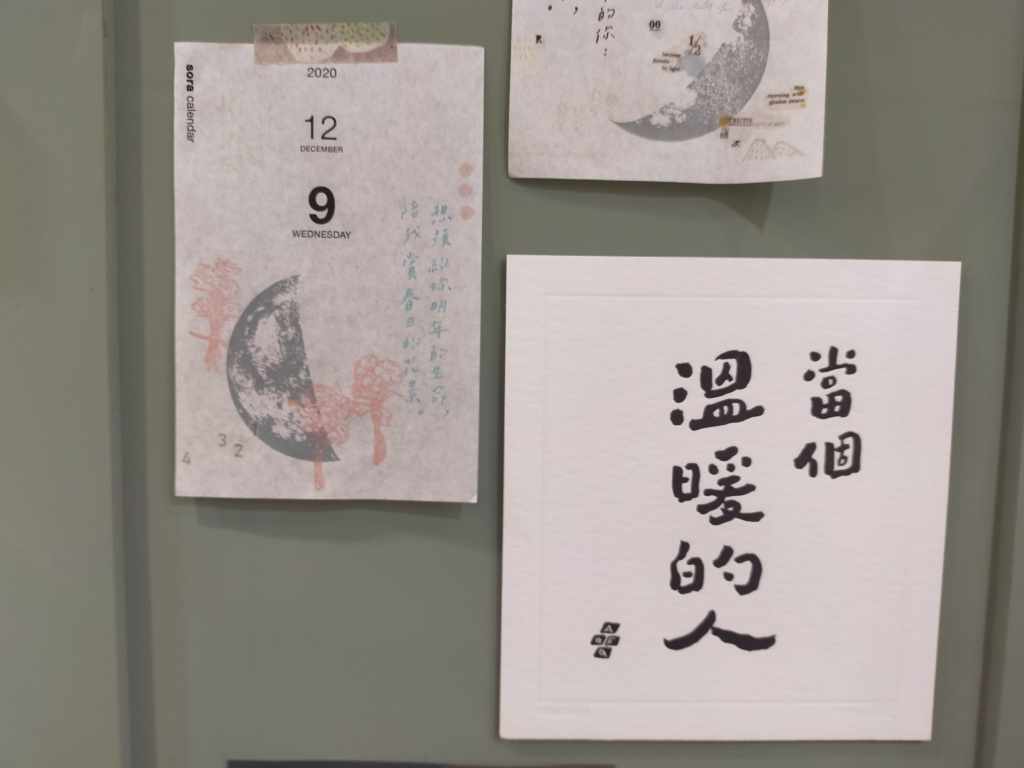 sora calendar
2020
12
DECEMBER
9
WEDNESDAY
想預約你明年的生命,
陪我賞春日的花景。
3
2
4
的你:
當個
溫暖的人